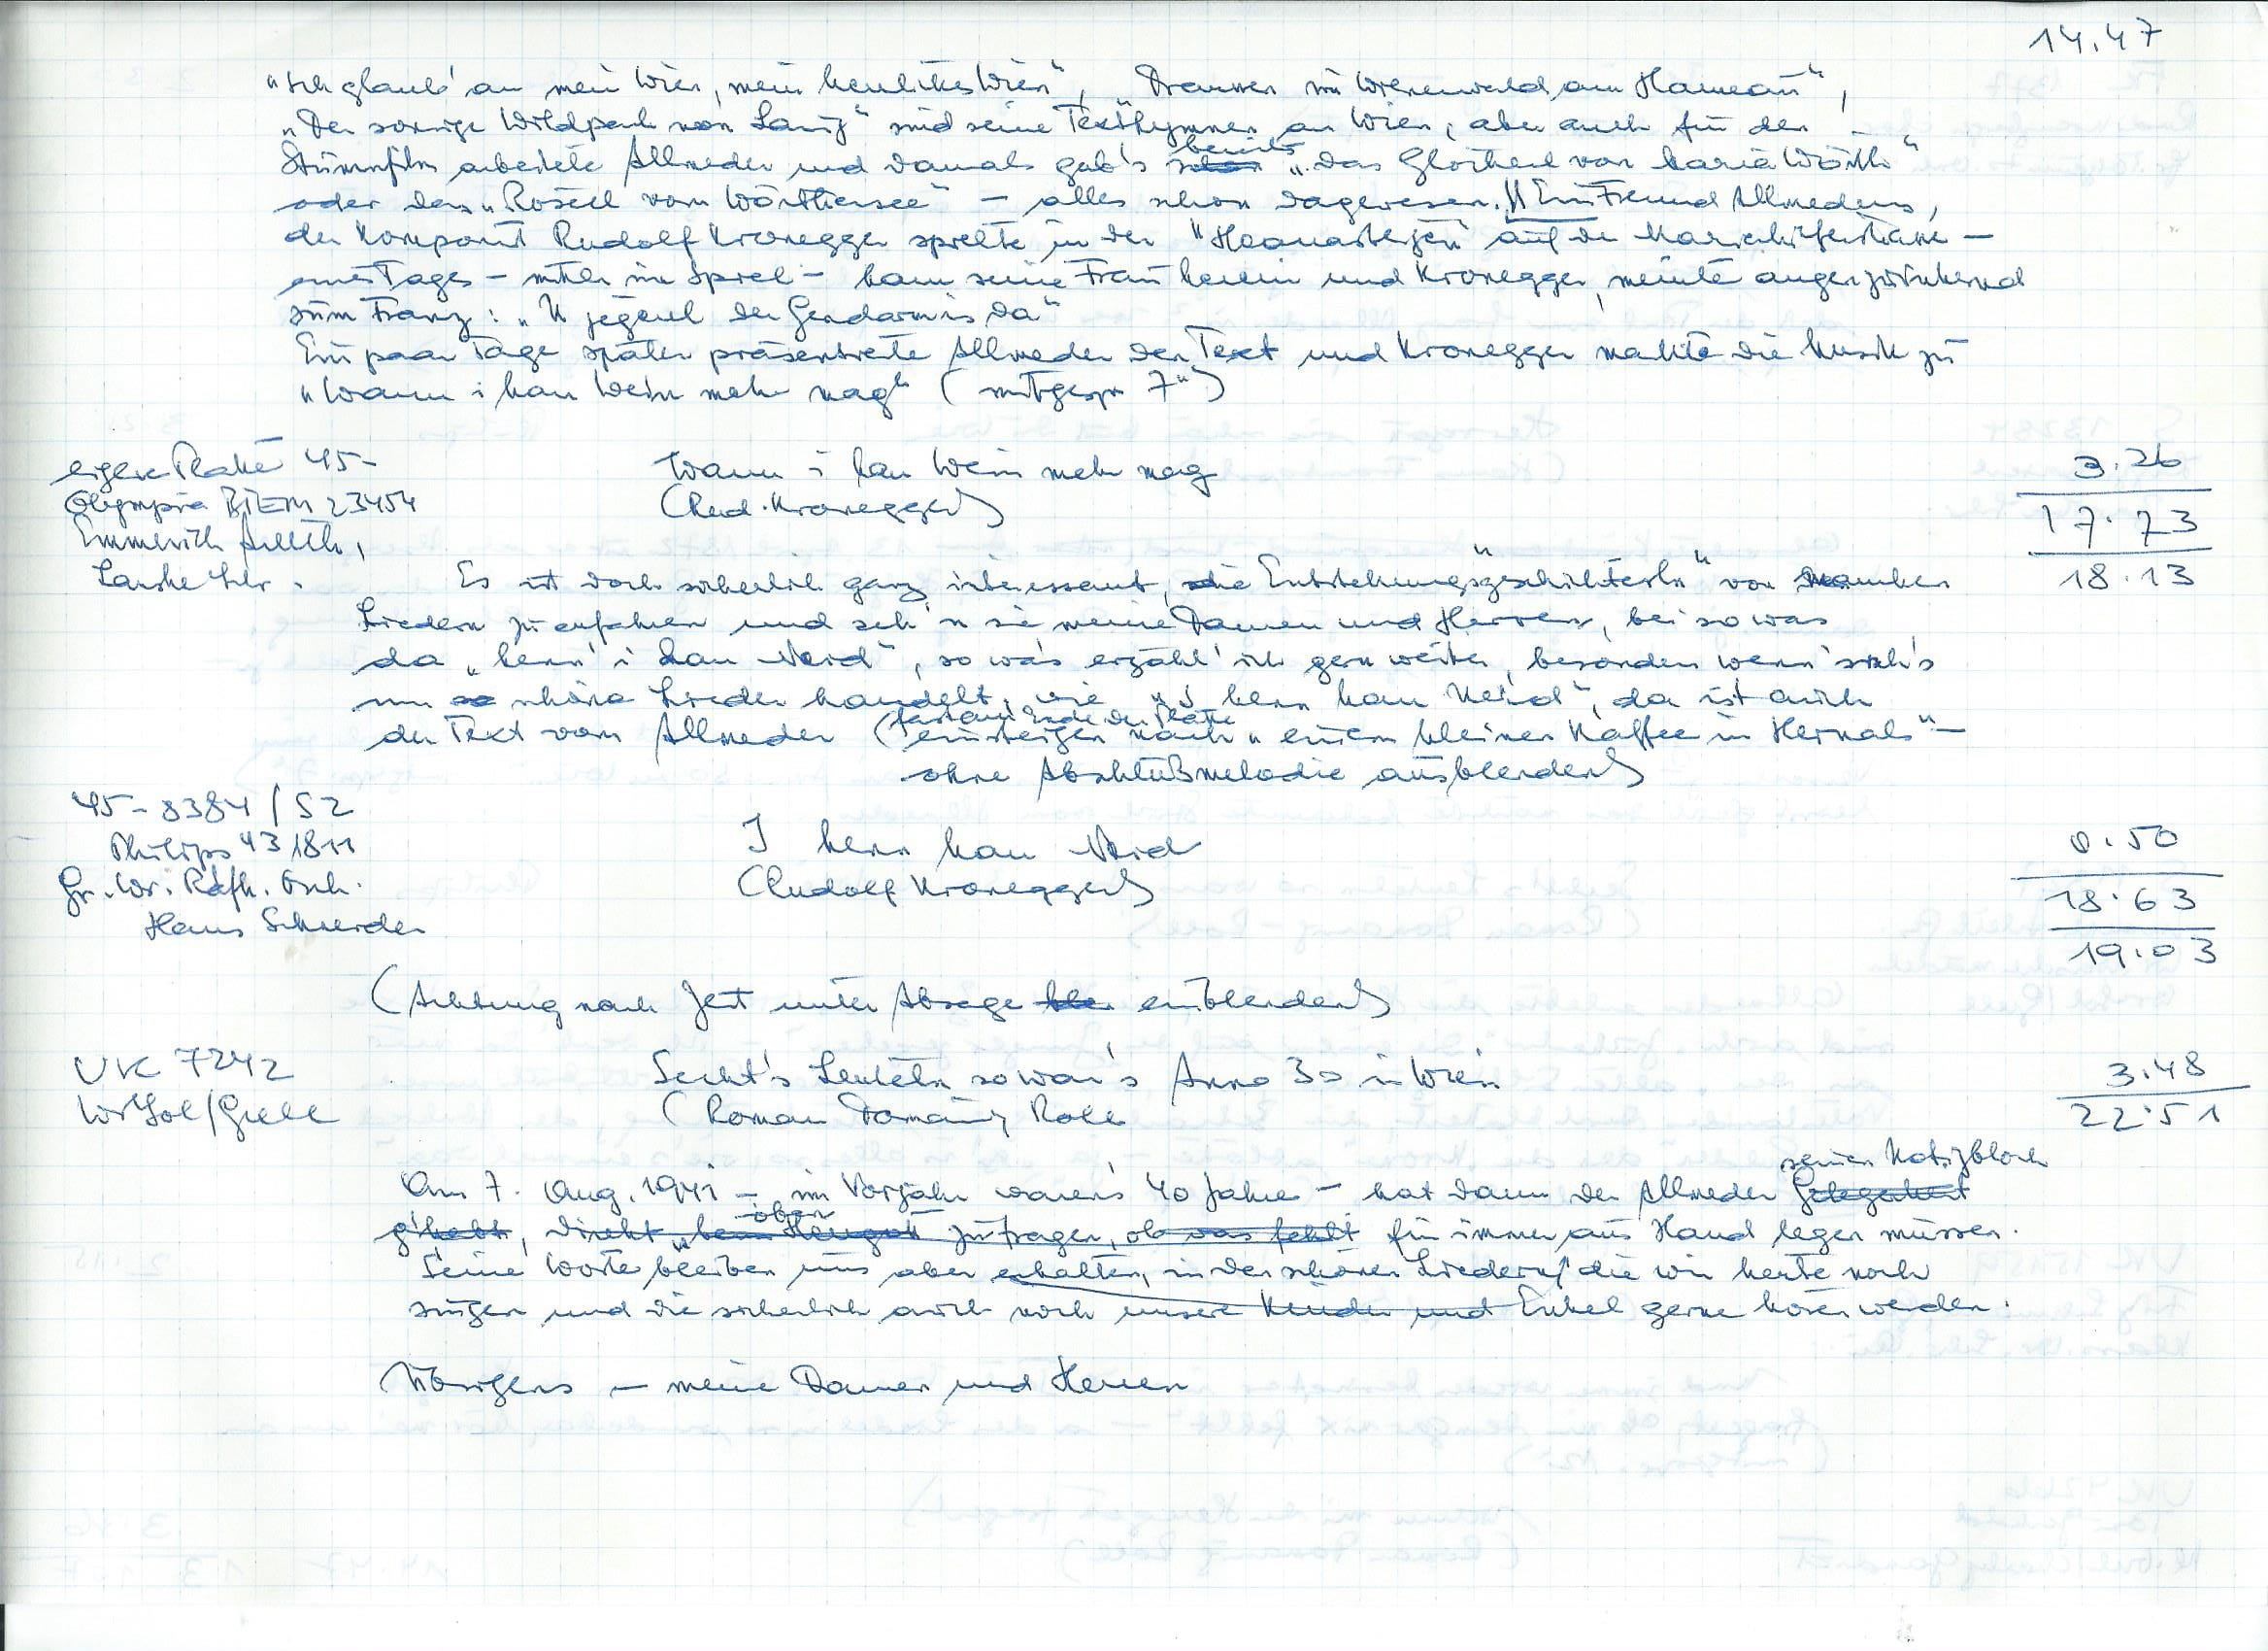 14.47
"Ich glaub' an mein Wien, mein herzliches Wien", "Draussen im Wienerwald am Hameau",
"Der sonnige Wildpark von Lainz" sind seine Texthymnen an Wien; aber auch für den
Stummfilm arbeitete Allmeder und damals gab's schon bereits "Das Glöckerl von Maria Wörth"
oder den "Roserl vom Wörthersee" – alles schon dagewesen. // Ein Freund Allmeders,
der Komponist Rudolf Kronegger spielte in der auf der Mariahilferstrasse –
eines Tages – mitten im Spiel – kam seine Frau herein und Kronegger, meinte augenzwinkernd
zum Franz: "U jegerl der Gendarm is da"
Ein paar Tage später präsentierte Allmeder den Text und Kronegger machte die Musik zu
"Wann i kan Wein mehr mag" (mitgespr 7")
eigene Platte 45-
Olympia BIEM 23454
Emmerich Arleth,
Lanske Schr.
Wann i kan Wein mehr mag
(Rud. Kronegger)
3.26
17.73
18.13
Es ist doch sicherlich ganz interessant, die "Entstehungsgeschichterln" von manchen
Liedern zu erfahren und seh'n sie meine Damen und Herren, bei so was
da "kenn' i kan Neid", so was erzähl' ich gern weiter, besonders wenn sich's
um so schöne Lieder handelt, wie "I kenn kan Neid", da ist auch
der Text vom Allmeder (fast am Ende der Platte einsteigen nach "einem kleinen Kaffee in Hernals" –
ohne Abschlußmelodie ausblenden)
45-8384/S2
Philips 431811
Gr. Wr. Rdfk. Orch.
Hans Schneider
I kenn kan Neid
(Rudolf Kronegger)
0.50
18.63
19.03
(Achtung nach Zeit unter Absage einblenden)
UK 7242
Wr Sol/Grell
Secht's Leuteln so war's Anno 30 in Wien
(Roman Domanig Roll
3.48
22.51
Am 7. Aug. 1941 – im Vorjahr waren's 40 Jahre – hat dann der Allmeder Gelegenheit seinen Notizblock
g'habt, direkt "beim Herrgott oben zu fragen, ob was fehlt für immer aus Hand legen müssen.
Seine Worte bleiben uns aber erhalten, in den schönen Liedern, die wir heute noch
singen und die sicherlich auch noch unsere Kinder und Enkel gerne hören werden.
Übrigens – meine Damen und Herren